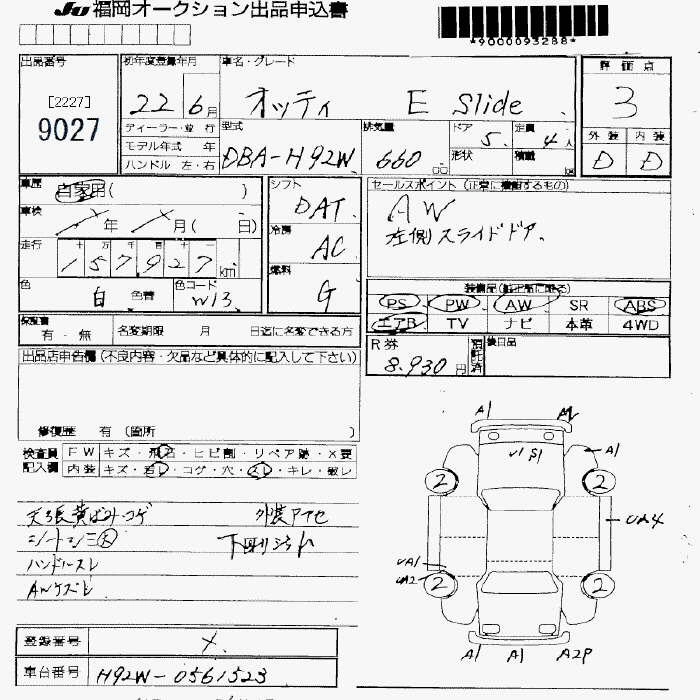 JU 福岡オークション出品申込書
*9000093288*
出品番号
[2227]
9027
初年度登録年月
22 6月
車名・グレード
オッティ E Slide
評価点
3
外装 内装
D D
ディーラー・並行
モデル年式 年
ハンドル 左・右
型式
DBA-H92W
排気量
660 cc
ドア 5.
形状
定員 4人
積載
車歴 自家用( )
車検 年 月( 日)
走行 十万千百十一
157927km
色 白 色替
色コード W13
シフト DAT
冷房 AC
燃料 G
セールスポイント (正常に機能するもの)
AW
左側スライドドア.
装備品(純正品に限る)
PS PW AW SR ABS
エアB TV ナビ 本革 4WD
保証書 有・無
名変期限 月 日迄に名変できる方
R券 8.930円
預託済
後日品
出品店申告欄 (不良内容・欠品など具体的に記入して下さい)
修復歴 有 (箇所 )
検査員記入欄
FW キズ・飛石・ヒビ割・リペア跡・X要
内装 キズ・若し・コゲ・穴・スレ・キレ・破レ
天張黄ばみ・コゲ 外装アセ
シートシミ大 下廻りサビ
ハンドルスレ
AWケズレ
A1
A1
U1 S1
2 2
UA4
UA1
UA2
2 2
A1 A1 A2P
登録番号
車台番号 H92W-0561523